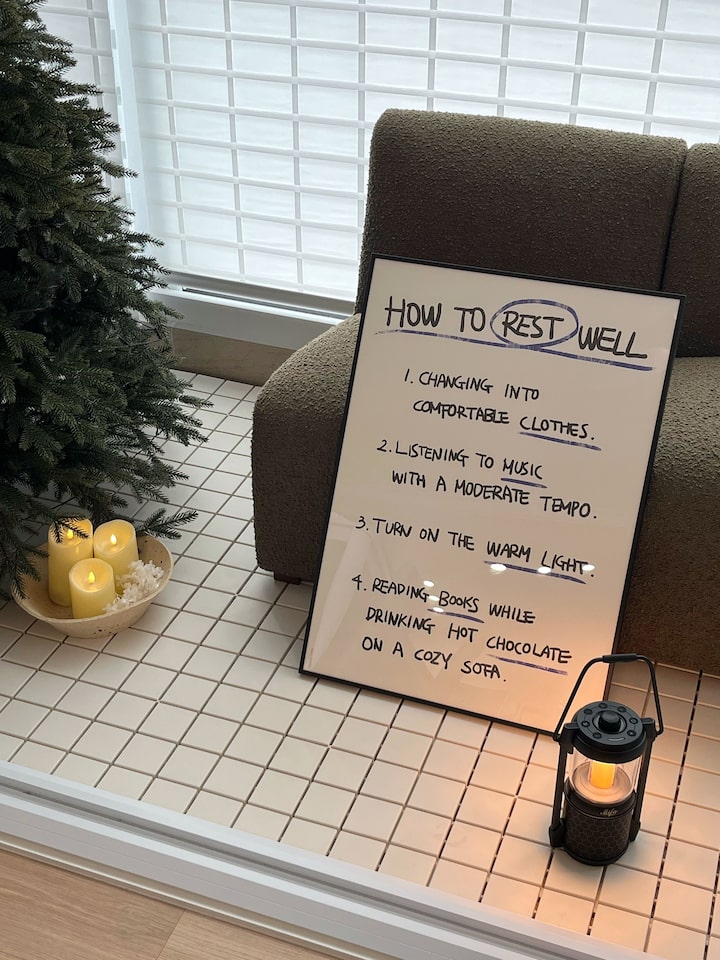 HOW TO REST WELL
1. CHANGING INTO
COMFORTABLE CLOTHES.
2. LISTENING TO MUSIC
WITH A MODERATE TEMPO.
3. TURN ON THE WARM LIGHT.
4. READING BOOKS WHILE
DRINKING HOT CHOCOLATE
ON A COZY SOFA.